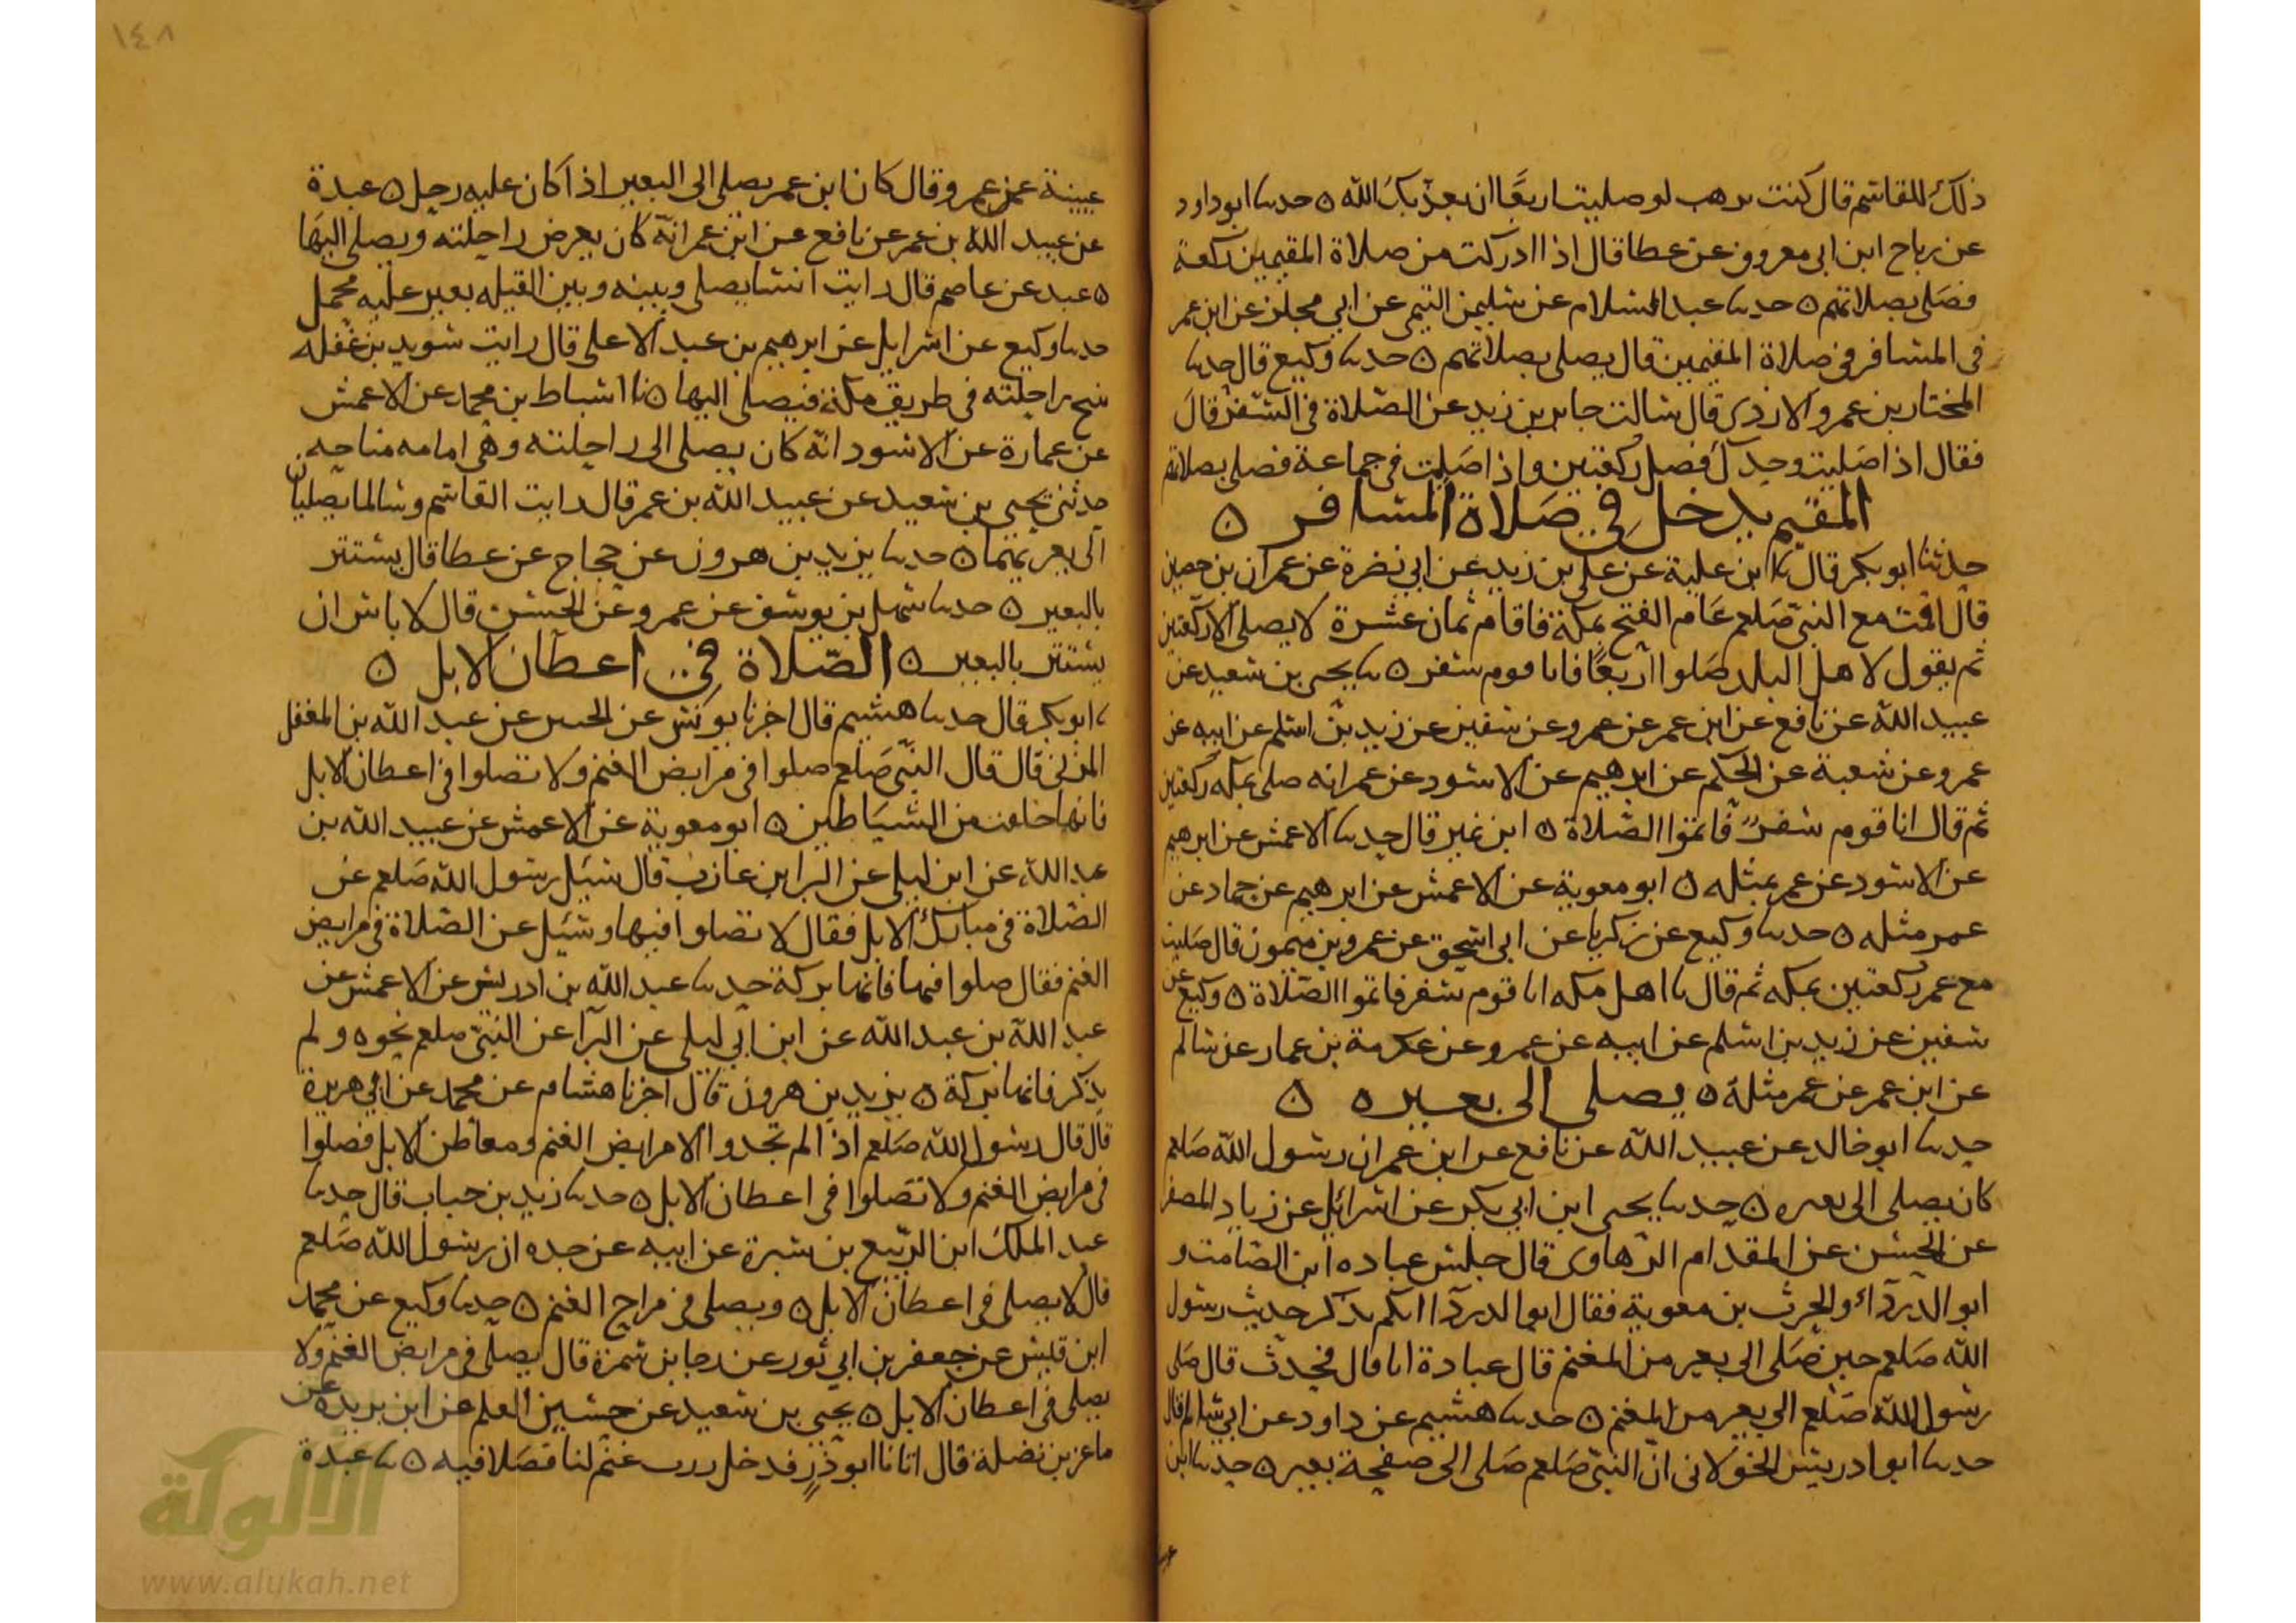 ذلك للقاسم قال كنت ترهب لو صليت اربعًا ان يعذبك الله ٥ حدثنا ابو داود
عن رباح ابن ابي معروف عن عطا قال اذا ادركت من صلاة المقيمين ركعة
فصلى بصلاتهم ٥ حدثنا عبد السلام عن سليمن التيمى عن ابي مجلز عن ابن عمر
فى المسافر فى صلاة المقيمين قال يصلى بصلاتهم ٥ حدثنا وكيع قال حدثنا
المختار بن عمرو الازدى قال سالت جابر بن زيد عن الصلاة فى السفر قال
فقال اذا صليت وحدك فصل ركعتين واذا صليت فى جماعة فصلى بصلاتهم
المقيم يدخل في صلاة المسافر ٥
حدثنا ابو بكر قال نا ابن علية عن على بن زيد عن ابي نضرة عن عمران بن حصين
قال اقمت مع النبى صلعم عام الفتح بمكة فاقام ثمان عشرة لا يصلى الا ركعتين
ثم يقول لاهل البلد صلوا اربعًا فانا قوم سفر ٥ نا يحيى بن سعيد عن
عبيد الله عن نافع عن ابن عمر عن عمر وعن سفين عن زيد بن اسلم عن ابيه عن
عمر وعن شعبة عن الحكم عن ابرهيم عن الاسود عن عمر انه صلى بمكه ركعتين
ثم قال انا قوم سفر فاتموا الصلاة ٥ ابن نمير قال حدثنا الاعمش عن ابرهيم
عن الاسود عن عمر بمثله ٥ ابو معوية عن الاعمش عن ابرهيم عن حماد عن
عمر مثله ٥ حدثنا وكيع عن زكريا عن ابى اسحق عن عمرو بن ميمون قال صليت
مع عمر ركعتين بمكه ثم قال يا اهل مكه انا قوم سفر فاتموا الصلاة ٥ وكيع عن
سفين عن زيد بن اسلم عن ابيه عن عمر وعن عكرمة بن عمار عن سالم
عن ابن عمر عن عمر مثله ٥ يصلى الى بعيره ٥
حدثنا ابو خالد عن عبيد الله عن نافع عن ابن عمر ان رسول الله صلعم
كان يصلى الى بعيره ٥ حدثنا يحيى ابن ابي بكر عن اسرائل عن زياد المصفر
عن الحسن عن المقدام الرهاوى قال جلس عباده ابن الصامت و
ابو الدرداء والحرث بن معوية فقال ابو الدرداء ايكم يذكر حديث رسول
الله صلعم حين صلى الى بعير من المغنم قال عبادة انا قال فحدث قال صلى
رسول الله صلعم الى بعير من المغنم ٥ حدثنا هشيم عن داود عن ابي سالم قال
حدثنا ابو ادريس الخولانى ان النبى صلعم صلى الى صفحة بعير ٥ حدثنا ابن
١٤٨
عيينة عن عمرو قال كان ابن عمر يصلى الى البعير اذا كان عليه رحل ٥ عبدة
عن عبيد الله بن عمر عن نافع عن ابن عمر انه كان يعرض راحلته ويصلى اليها
٥ عبد عن عاصم قال رايت انسا يصلى وبينه وبين القبله بعير عليه محمل
حدثنا وكيع عن اسرايل عن ابرهيم بن عبد الاعلى قال رايت سويد بن غفله
ينيخ راحلته فى طريق مكة فيصلى اليها ٥ نا اسباط بن محمد عن الاعمش
عن عمارة عن الاسود انه كان يصلى الى راحلته وهى امامه مناخه
حدثنى يحيى بن سعيد عن عبيد الله بن عمر قال رايت القاسم وسالما يصليان
الى بعيريهما ٥ حدثنا يزيد بن هرون عن حجاج عن عطا قال يستتر
بالبعير ٥ حدثنا سهل بن يوسف عن عمرو عن الحسن قال لا باس ان
يستتر بالبعير ٥ الصلاة في اعطان الابل ٥
نا ابو بكر قال حدثنا هشيم قال اخبرنا يونس عن الحسن عن عبد الله بن المغفل
المزنى قال قال النبى صلعم صلوا فى مرابض الغنم ولا تصلوا فى اعطان الابل
فانها خلقت من الشياطين ٥ ابو معوية عن الاعمش عن عبيد الله بن
عبد الله عن ابن ليلى عن البرا بن عازب قال سيل رسول الله صلعم عن
الصلاة فى مبارك الابل فقال لا تصلوا فيها وسيل عن الصلاة فى مرابض
الغنم فقال صلوا فيها فانها بركة حدثنا عبد الله بن ادريس عن الاعمش عن
عبد الله بن عبد الله عن ابن ابي ليلى عن البرا عن النبى صلعم نحوه ولم
يذكر فانها بركة ٥ يزيد بن هرون قال اخبرنا هشام عن محمد عن ابي هريرة
قال قال رسول الله صلعم اذا لم تجدوا الا مرابض الغنم ومعاطن الابل فصلوا
فى مرابض الغنم ولا تصلوا فى اعطان الابل ٥ حدثنا زيد بن حباب قال حدثنا
عبد الملك ابن الربيع بن سبرة عن ابيه عن جده ان رسول الله صلعم
قال لا يصلى فى اعطان الابل ٥ ويصلى فى مراح الغنم ٥ حدثنا وكيع عن محمد
ابن قيس عن جعفر بن ابي ثور عن جابر بن سمرة قال يصلى فى مرابض الغنم ولا
يصلى فى اعطان الابل ٥ يحيى بن سعيد عن حسين المعلم عن ابن بريدة عن
ماعز بن نضلة قال اتانا ابو ذر فدخل زرب غنم لنا فصلا فيه ٥ نا عبدة
الألوكة
www.alukah.net